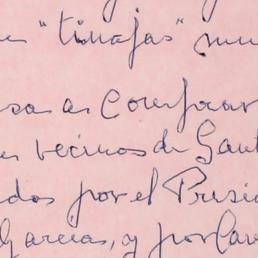 "tinajas" mu
sa a comprar
vecinos de Sant
dos por el Presi
Garcias, y por Car